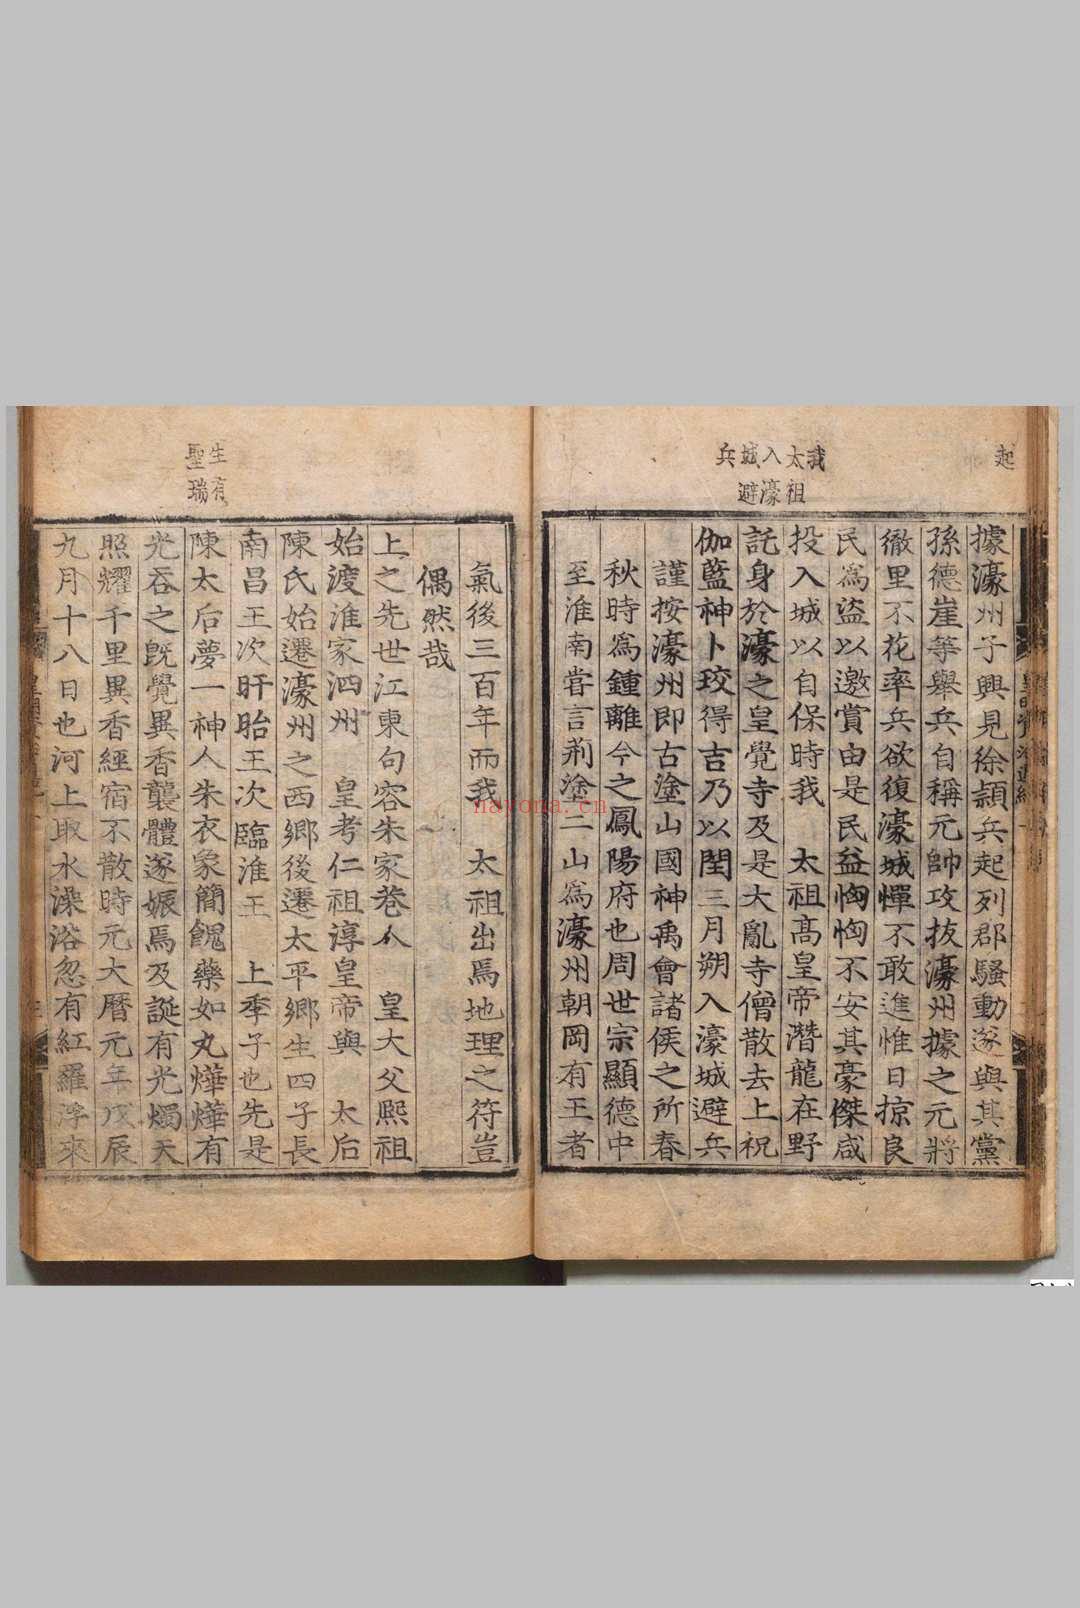 起
我太入城兵
祖濠避
據濠州子興見徐頴兵起列郡騷動遂與其黨
孫德崖等舉兵自稱元帥攻拔濠州據之元將
徹里不花率兵欲復濠城憚不敢進惟日掠良
民爲盜以邀賞由是民益恟恟不安其豪傑咸
投入城以自保時我　太祖高皇帝潛龍在野
託身於濠之皇覺寺及是大亂寺僧散去上祝
伽藍神卜珓得吉乃以閏三月朔入濠城避兵
謹按濠州即古塗山國神禹會諸侯之所春
秋時爲鍾離今之鳳陽府也周世宗顯德中
至淮南嘗言荊塗二山爲濠州朝岡有王者
生有
聖瑞
氣後三百年而我　太祖出焉地理之符豈
偶然哉
上之先世江東句容朱家巷人　皇大父熙祖
始渡淮家泗州　皇考仁祖淳皇帝與　太后
陳氏始遷濠州之西鄉後遷太平鄉生四子長
南昌王次盱眙王次臨淮王　上季子也先是
陳太后夢一神人朱衣象簡餽藥如丸燁燁有
光吞之旣覺異香襲體遂娠焉及誕有光燭天
照耀千里異香經宿不散時元大曆元年戊辰
九月十八日也河上取水澡浴忽有紅羅浮來
nayona.cn